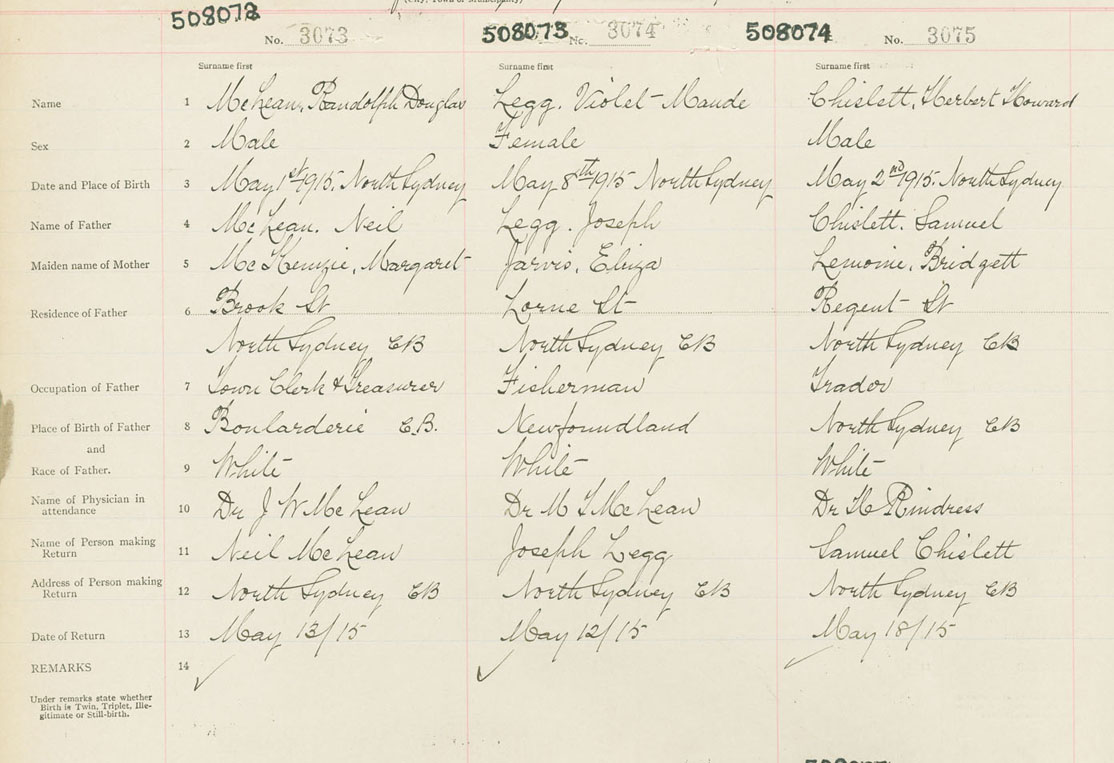 (City, Town or Municipality)
508073 508074
No. 3073 No. 3074 No. 3075
Surname first Surname first Surname first
Name 1 McLean, Randolph Douglas Legg. Violet-Maude Chislett, Herbert Howard
Sex 2 Male Female Male
Date and Place of Birth 3 May 1st 1915. North Sydney May 8th 1915 North Sydney May 2nd 1915. North Sydney
Name of Father 4 McLean. Neil Legg. Joseph Chislett. Samuel
Maiden name of Mother 5 McKenzie, Margaret Jarvis, Eliza Lemoine, Bridgett
Residence of Father 6 Brook St Lorne St Regent St
North Sydney CB North Sydney CB North Sydney CB
Occupation of Father 7 Town Clerk & Treasurer Fisherman Trador
Place of Birth of Father 8 Boularderie C.B. Newfoundland North Sydney CB
and
Race of Father. 9 White White White
Name of Physician in
attendance 10 Dr J W McLean Dr M T McLean Dr Rindress
Name of Person making
Return 11 Neil McLean Joseph Legg Samuel Chislett
Address of Person making
Return 12 North Sydney CB North Sydney CB North Sydney CB
Date of Return 13 May 13/15 May 12/15 May 18/15
REMARKS 14
Under remarks state whether
Birth is Twin, Triplet, Ille-
gitimate or Still-birth.